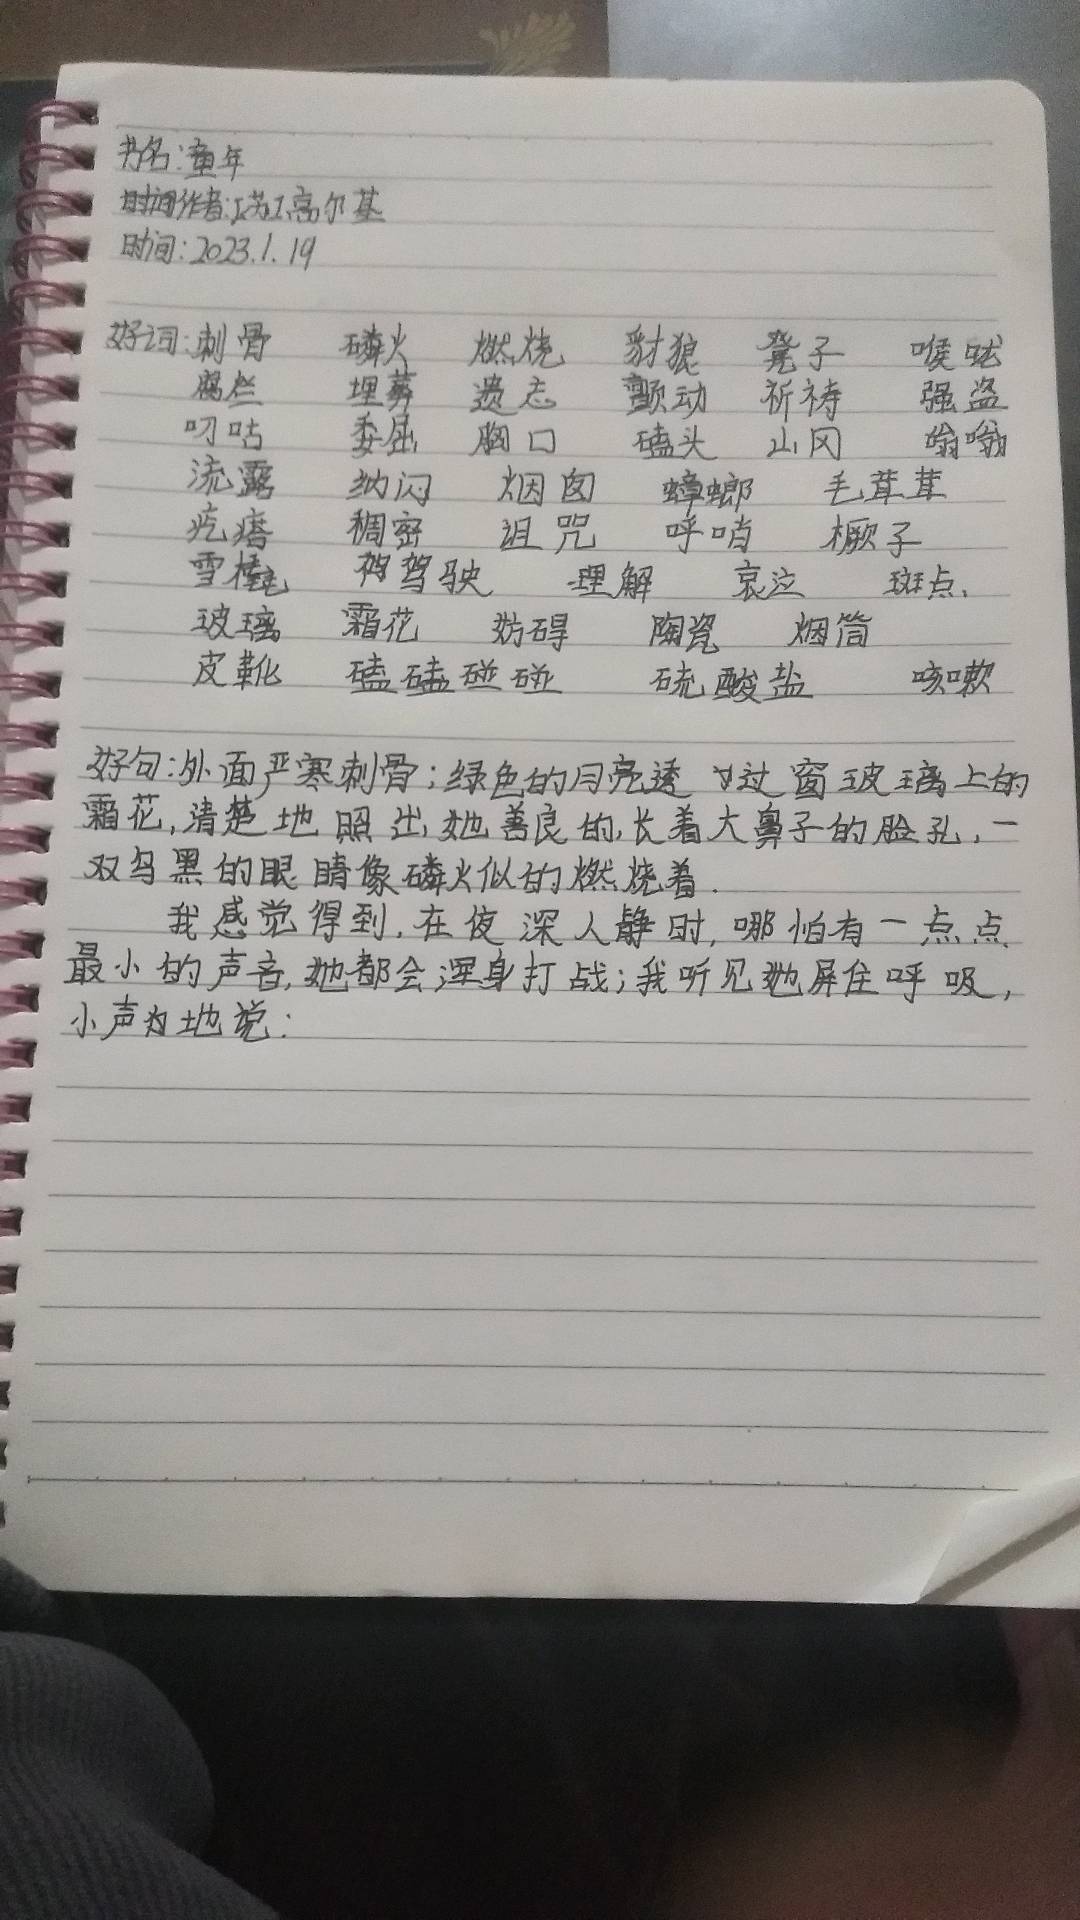 书名:童年
作者:[苏]高尔基
时间:2023.1.19
好词:刺骨 磷火 燃烧 豺狼 凳子 喉咙
腐烂 埋葬 遗志 颤动 祈祷 强盗
叨咕 委屈 胸口 磕头 山冈 嗡嗡
流露 纳闪 烟囱 蟑螂 毛茸茸
疙瘩 稠密 诅咒 呼哨 橛子
雪橇 驾驶 理解 哀泣 斑点.
玻璃 霜花 妨碍 陶瓷 烟筒
皮靴 磕磕碰碰 硫酸盐 咳嗽
好句:外面严寒刺骨;绿色的月亮透过窗玻璃上的
霜花,清楚地照出她善良的,长着大鼻子的脸孔,一
双乌黑的眼睛像磷火似的燃烧着.
我感觉得到,在夜深人静时,哪怕有一点点
最小的声音,她都会浑身打战;我听见她屏住呼吸,
小声地说: